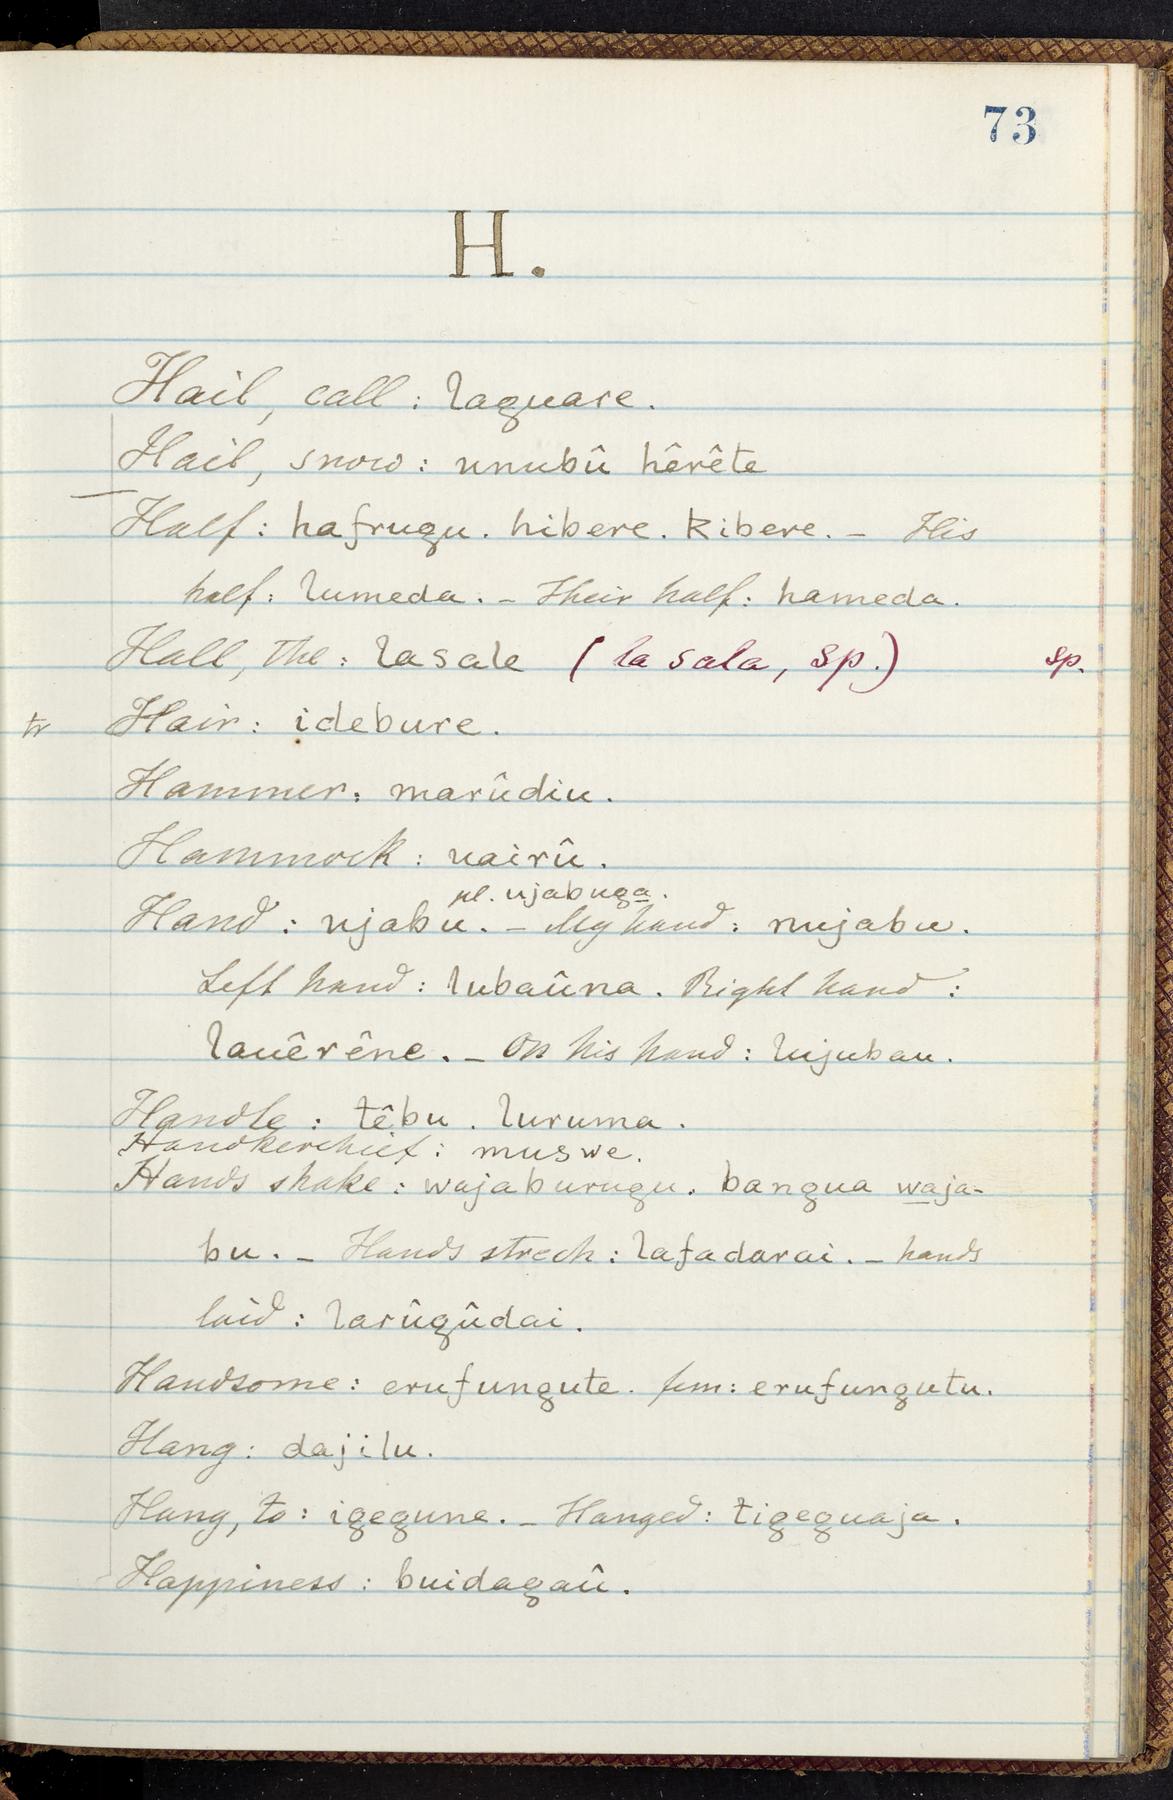 73
H.
Hail, call: laguare.
Hail, snow: unubû hêrête
Half: hafrugu. hibere. kibere. – His
half: lumeda. – Their half: hameda.
Hall, the: lasale (la sala, sp.) sp.
tr Hair: idebure.
Hammer: marûdiu.
Hammock: uairû.
pl. ujabuga.
Hand: ujabu. – My hand: nujabu.
Left hand: lubaûna. Right hand:
lauêrêne. – On his hand: lujubau.
Handle: têbu. luruma.
Handkerchief: muswe.
Hands shake: wajaburugu. bangua waja-
bu. – Hands strech: lafadarai. – hands
laid: larûgûdai.
Handsome: erufungute. fem: erufungutu.
Hang: dajilu.
Hang, to: igegune. – Hanged: tigeguaja.
Happiness: buidagaû.